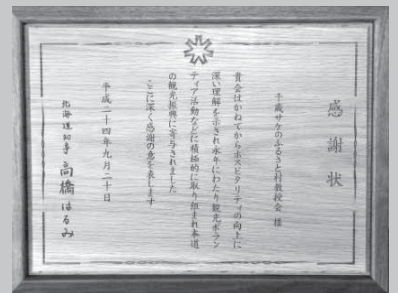 感謝状
千歳サケのふるさと村教授会 様
貴会はかねてからホスピタリティの向上に
深い理解を示され永年にわたり観光ボラン
ティア活動などに積極的に取り組まれ本道
の観光振興に寄与されました
ここに深く感謝の意を表します
平成二十四年九月二十日
北海道知事 高橋はるみ